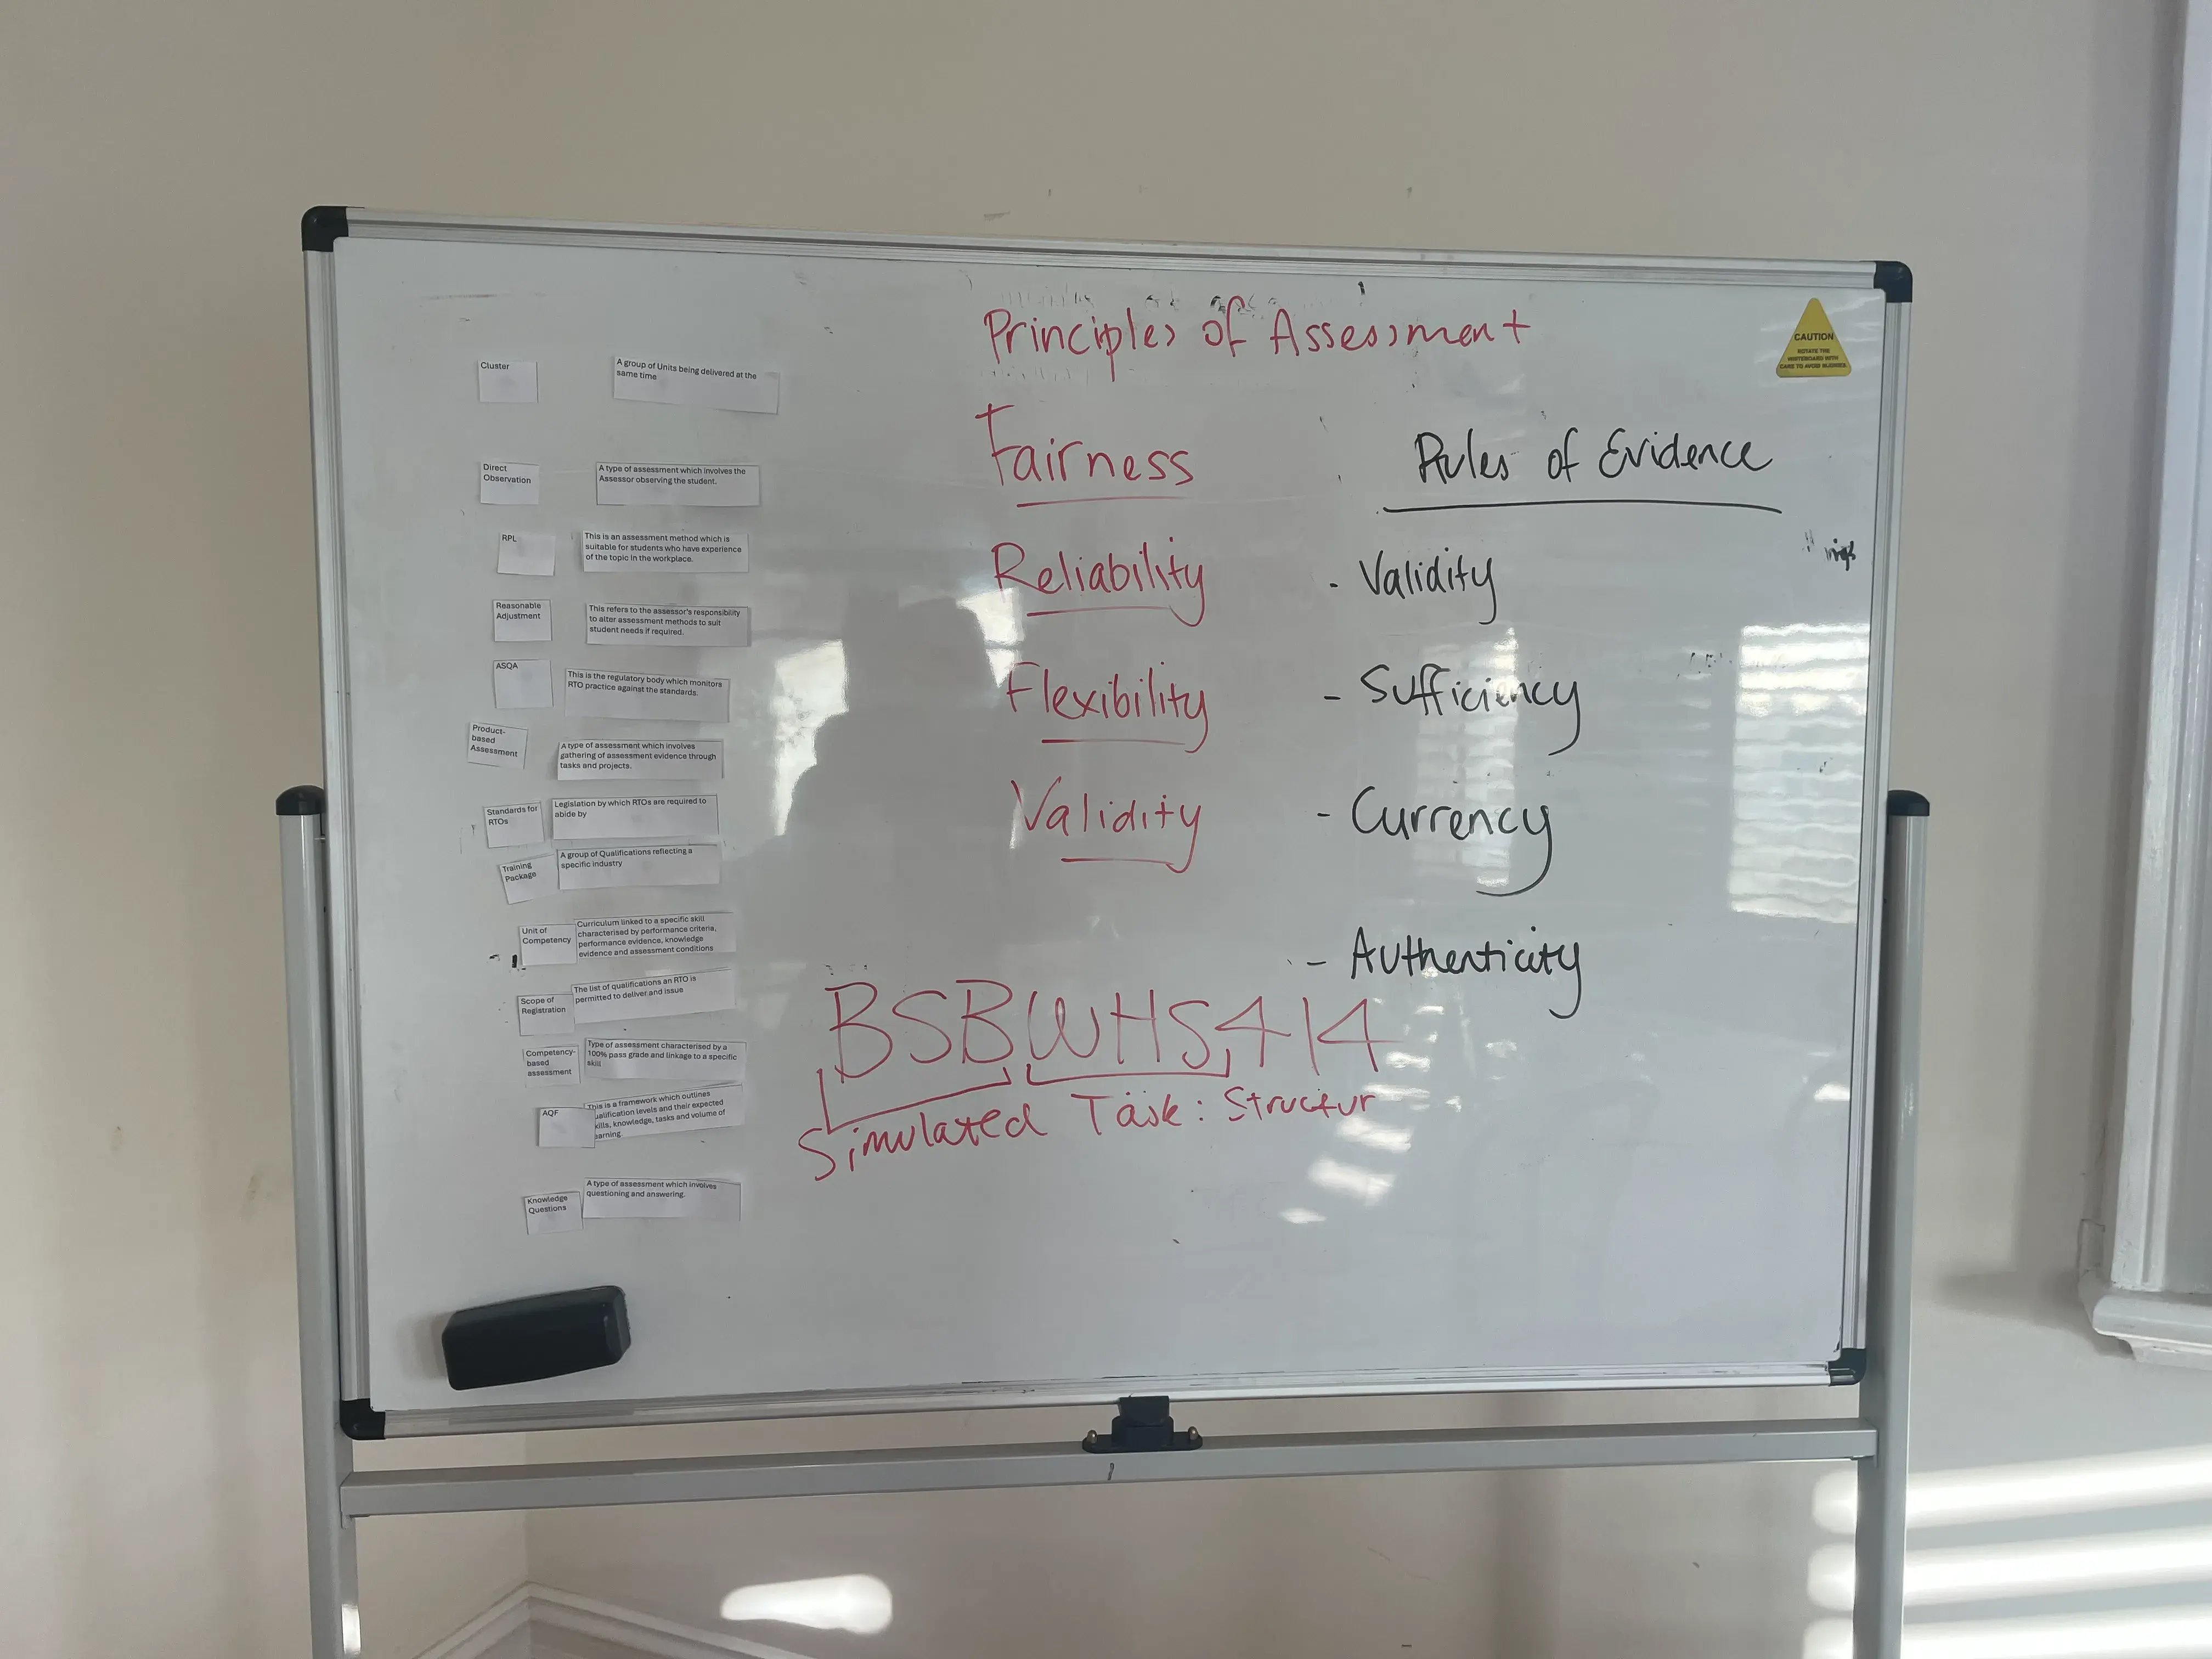 Principles of Assessment
CAUTION
ROTATE THE
WHITEBOARD WITH
CARE TO AVOID INJURIES
Cluster
A group of Units being delivered at the
same time
Direct
Observation
A type of assessment which involves the
Assessor observing the student.
RPL
This is an assessment method which is
suitable for students who have experience
of the topic in the workplace.
Reasonable
Adjustment
This refers to the assessor's responsibility
to alter assessment methods to suit
student needs if required.
ASQA
This is the regulatory body which monitors
RTO practice against the standards.
Product-
based
Assessment
A type of assessment which involves
gathering of assessment evidence through
tasks and projects.
Standards for
RTOs
Legislation by which RTOs are required to
abide by
Training
Package
A group of Qualifications reflecting a
specific industry
Unit of
Competency
Curriculum linked to a specific skill
characterised by performance criteria,
performance evidence, knowledge
evidence and assessment conditions
Scope of
Registration
The list of qualifications an RTO is
permitted to deliver and issue
Competency-
based
assessment
Type of assessment characterised by a
100% pass grade and linkage to a specific
skill
AQF
This is a framework which outlines
ualification levels and their expected
kills, knowledge, tasks and volume of
earning
Knowledge
Questions
A type of assessment which involves
questioning and answering.
Fairness
Reliability
Flexibility
Validity
Rules of Evidence
- Validity
- Sufficiency
- Currency
- Authenticity
BSBWHS414
Simulated Task: Structur